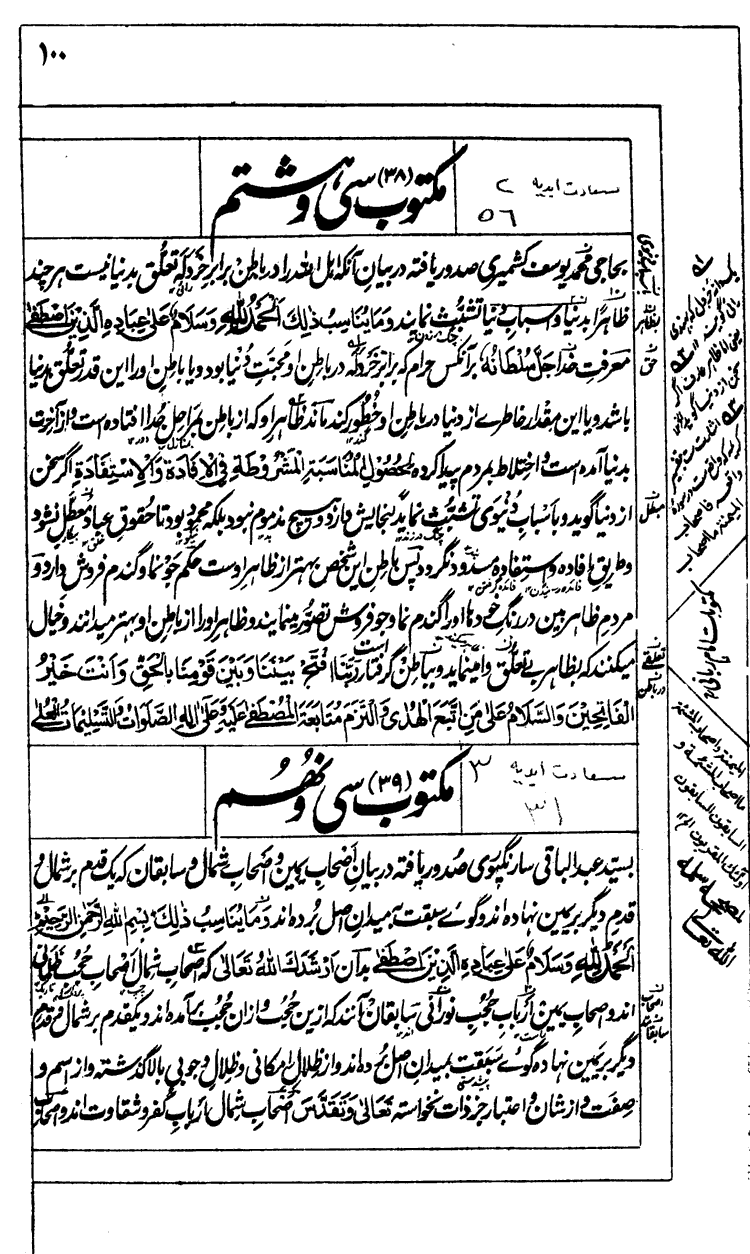 ۱۰۰
سعادت ابدیه ۲
۵۶
مکتوب (۳۸) سی و هشتم
بحاجی محمد یوسف کشمیری صدور یافته در بیان آنکه اهل الله را در باطن برابر خردله تعلّق بدنیا نیست هرچند
ظاهرا بدنیا و اسباب دنیا تشبّث نمایند و ما یناسب ذلک اَلْحَمْدُ لِلّٰهِ وَسَلَامٌ عَلٰی عِبَادِهِ الَّذِیْنَ اصْطَفٰی
معرفت خدا جَلَّ سُلْطَانُهٗ برآنکس حرام که برابر خردله در باطن او محبّت دنیا بود و یا باطن او را این قدر تعلّق بدنیا
باشد و یا این مقدار خاطرے از دنیا در باطن او خطور کند ماند ظاهر او که از باطن بمراحل جدا افتاده است و از آخرت
بدنیا آمده است و اختلاط بمردم پیدا کرده لحصول المناسبة المشروطة فی الافادة والاستفادة اگر سخن
از دنیا گوید و باسباب دنیوی تشبّث نماید گنجایش دارد و هیچ مذموم نبود بلکه محمود بود تا حقوق عباد معطل نشود
و طریق افاده و استفاده مسدود نگردد پس باطن این شخص بهتر از ظاهر اوست حکم جو نما و گندم فروش دارد و
مردم ظاهربین در رنگ خودها او را گندم نما و جو فروش تصوّر مینمایند و ظاهر او را از باطن او بهتر میدانند و خیال
میکنند که بظاهر بے تعلّق وا مینماید و بباطن گرفتار است رَبَّنَا افْتَحْ بَیْنَنَا وَبَیْنَ قَوْمِنَا بِالْحَقِّ وَاَنْتَ خَیْرُ
الْفَاتِحِیْنَ وَالسَّلَامُ عَلٰی مَنِ اتَّبَعَ الْهُدٰی وَالْتَزَمَ مُتَابَعَةَ الْمُصْطَفٰی عَلَیْهِ وَعَلٰی اٰلِهِ الصَّلَوَاتُ وَالتَّسْلِیْمَاتُ الْعُلٰی
سعادت ابدیه ۳
۳۱
مکتوب (۳۹) سی و نهم
بسید عبد الباقی سارنگپوی صدور یافته در بیان اصحاب یمین و اصحاب شمال و سابقان که یک قدم بر شمال و
قدم دیگر بر یمین نهاده اند و گوے سبقت بمیدان اصل برده اند و ما یناسب ذلک بسم الله الرحمن الرحیم
اَلْحَمْدُ لِلّٰهِ وَسَلَامٌ عَلٰی عِبَادِهِ الَّذِیْنَ اصْطَفٰی بدان اَرْشَدَکَ اللهُ تَعَالٰی که اصحاب شمال اصحاب حجب ظلمانی
اند و اصحاب یمین ارباب حجب نورانی سابقان آنانند که ازین حجب و ازان حجب برآمده اند و یکقدم بر شمال و قدم
دیگر بر یمین نهاده گوے سبقت بمیدان اصل برده اند و از ظلال امکانی و ظلال وجوبی بالا گذشته و از اسم و
صفت و از شان و اعتبار جز ذات نخواسته تعالی و تقدّس اصحاب شمال ارباب کفر و شقاوت اند و اصحاب
مکتوبات امام ربانی
المیمنة و اصحاب المشئمة
ما اصحاب المشئمة و
السابقون السابقون
اولئک المقربون